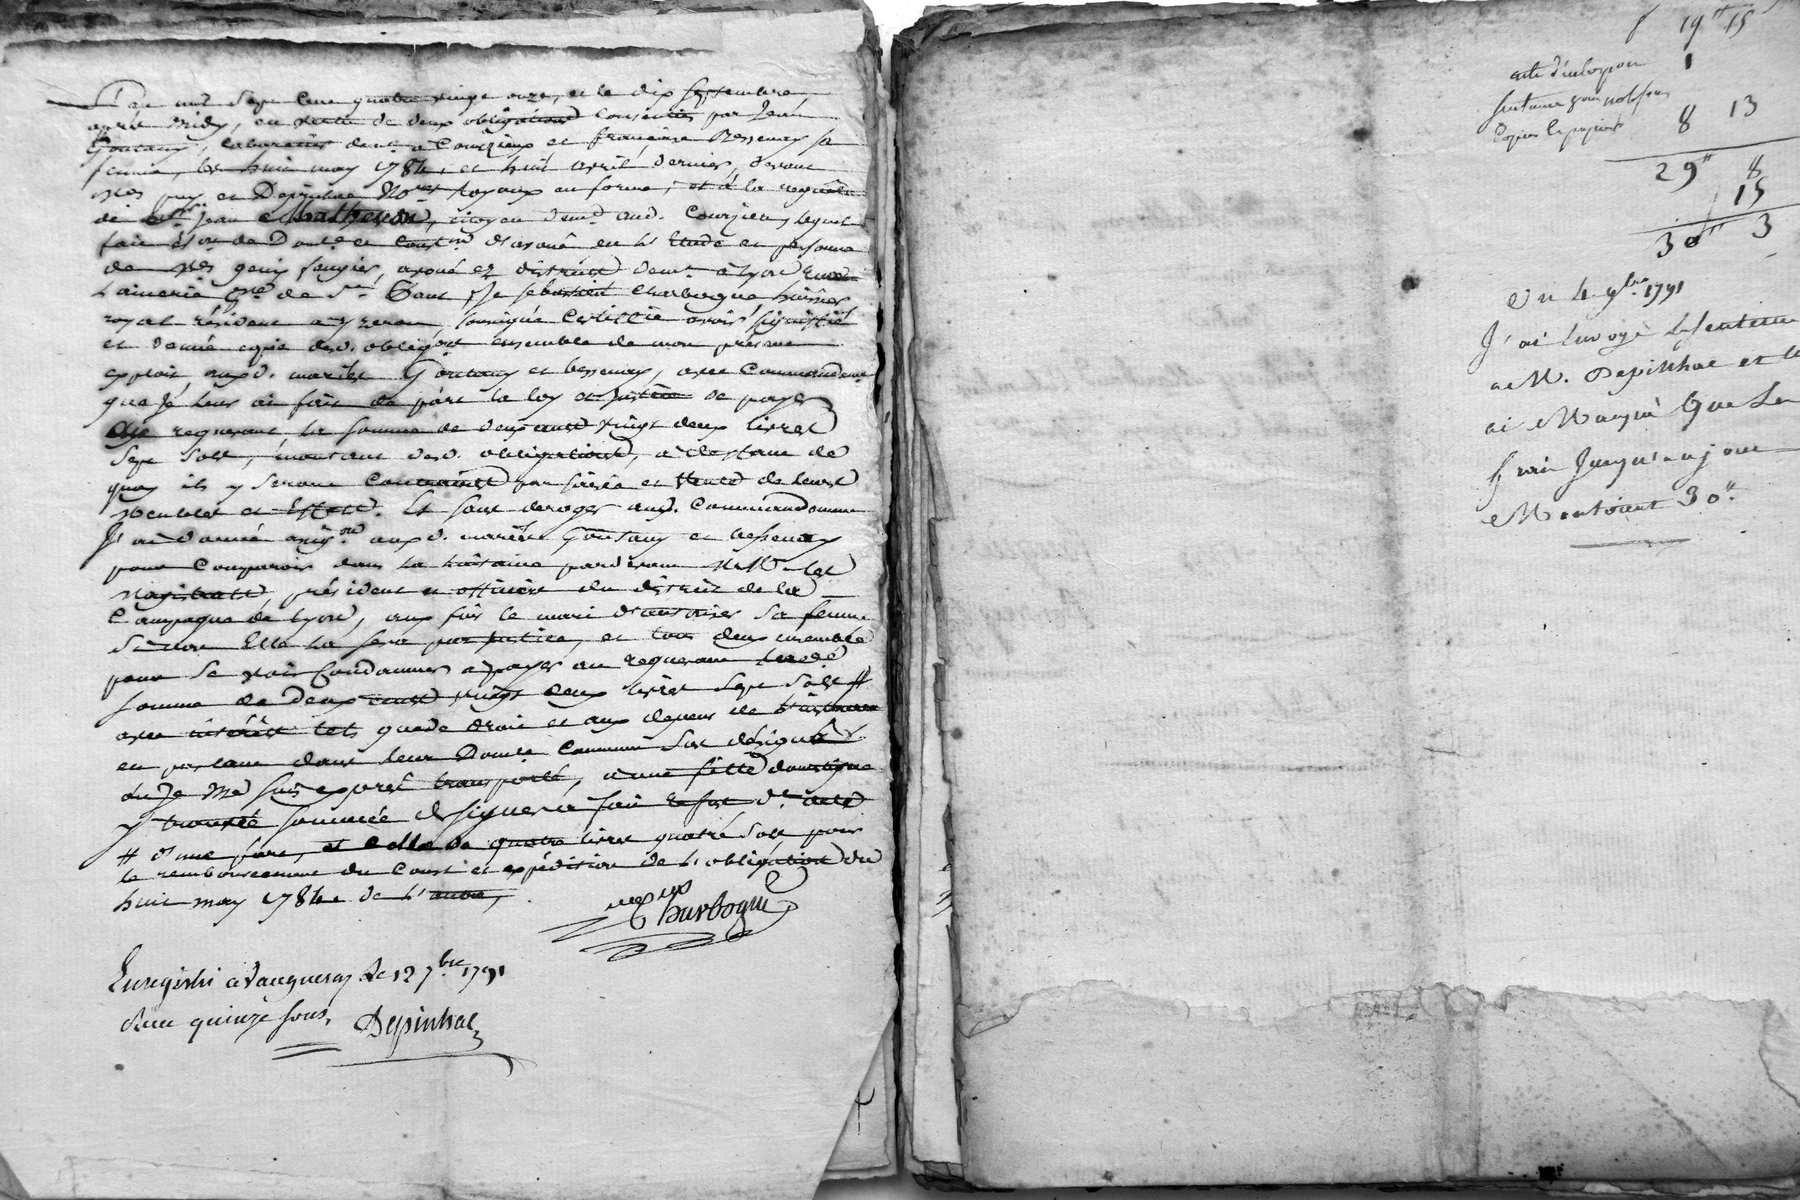 L'an mil sept cent quatre vingt onze, et le dix septembre
après midy, en vertu de deux obligations consenties par Jean
Goutany, laboureur demt a Courzieux et françoise Bessenay sa
femme, les huit may 1784, et huit avril dernier, devant
Mes puy et Depinhac Nores royaux en forme; et à la requête
de Jean Matheron, citoyen demt aud. Courzieu, lequel
fait élon de Domle et conston d'avoué en l'Etude et personne
de Me avoué es district demt a Lyon rue
Lainerie de St Paul, Je sebastien Charbogne huissier
royal résident a yzeron, soussigné certiffie avoir signiffié
et donné copie desd. obligons ensemble de mon présent
exploit auxd. mariés Goutany et bessenay, avec Commandemt
que je leur ai fait de part la loy et justice de payer
au requerant, la somme de deux cent vingt deux livres
sept sols, montant desd. obligations, a deffaut de
quoy ils y seront contraints par saisie et vente de leurs
meubles et effets. Et sans deroger aud. Commandement
J'ai donné assigon auxd. mariés Goutany et bessenay
pour Comparoir dans la huitaine pardevant MM. les
magistrats, président et officiers du district de la
Campagne de Lyon, aux fins le mari d'autoriser sa femme
sinon Elle la sera par justice, et tous deux ensemble
pour se voir Condamner a payer au requerant lad.
somme de Deux cent vingt deux livres sept sols #
avec intérêts tels que de droit et aux depens de l'instance
en parlant dans leur Domle commun sus désigné
ou Je me suis exprès transporté, a une fille domestique
y trouvée sommée de signer a fait refus dt acte
# d'une part, et celle de quatre livres quatre sols pour
le remboursement du Cout et expédition de l'obligation du
huit may 1784 de l'autre,
Charbogne
Enregistré a Vaugneray le 12 7bre 1791
Reçu quinze sous, Depinhac
19tt 15
acte d'interpon 1
sentence
Copies le papier 8 13
29tt 8
15
30tt 3
Du 4 9bre 1791
J'ai Envoyé la sentence
a M. Depinhac et lui
ai Marqué Que Les
frais Jusqu'a ce jour
Montoient 30tt